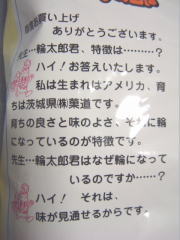 お買い上げ
ありがとうございます。
先生…輪太郎君、特徴は………?
ハイ!お答えいたします。
私は生まれはアメリカ、育
ちは茨城県㈱菓道です。
育ちの良さと味のよさ、それに輪
になっているのが特徴です。
先生…輪太郎君はなぜ輪になって
いるのですか……?
ハイ! それは、
味が見通せるからです。